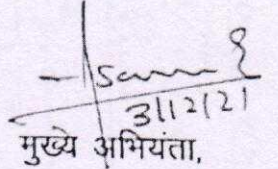 3/12/21
मुख्ये अभियंता,